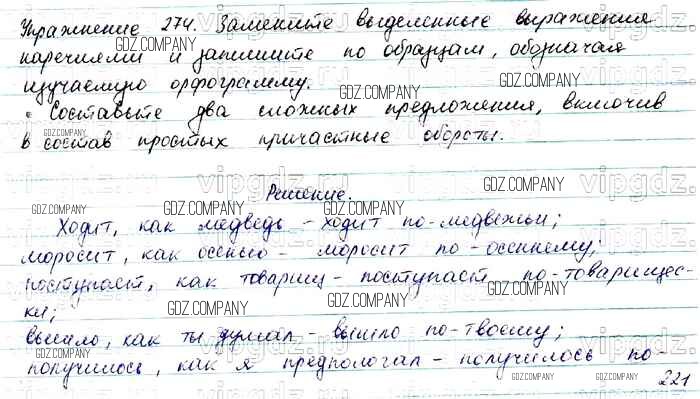 Упражнение 274. Замените выделенные выражения
наречиями и запишите по образцам, обозначая
изучаемую орфограмму.
• Составьте два сложных предложения, включив
в состав простых причастные обороты.
Решение.
Ходит, как медведь - ходит по-медвежьи;
моросит, как осенью - моросит по-осеннему;
поступает, как товарищ - поступает по-товарищес-
ки;
вышло, как ты думал - вышло по-твоему;
получилось, как я предпологал - получилось по-
221
GDZ.COMPANY
vipgdz.ru